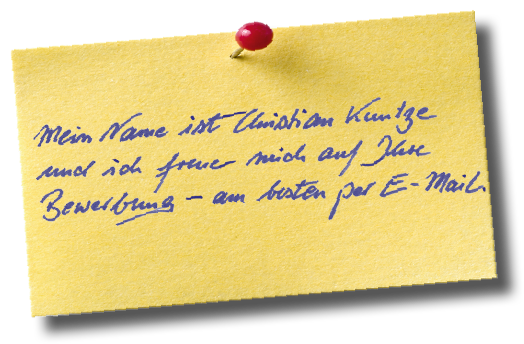 Mein Name ist Christian Kuntze
und ich freue mich auf Ihre
Bewerbung – am besten per E-Mail.